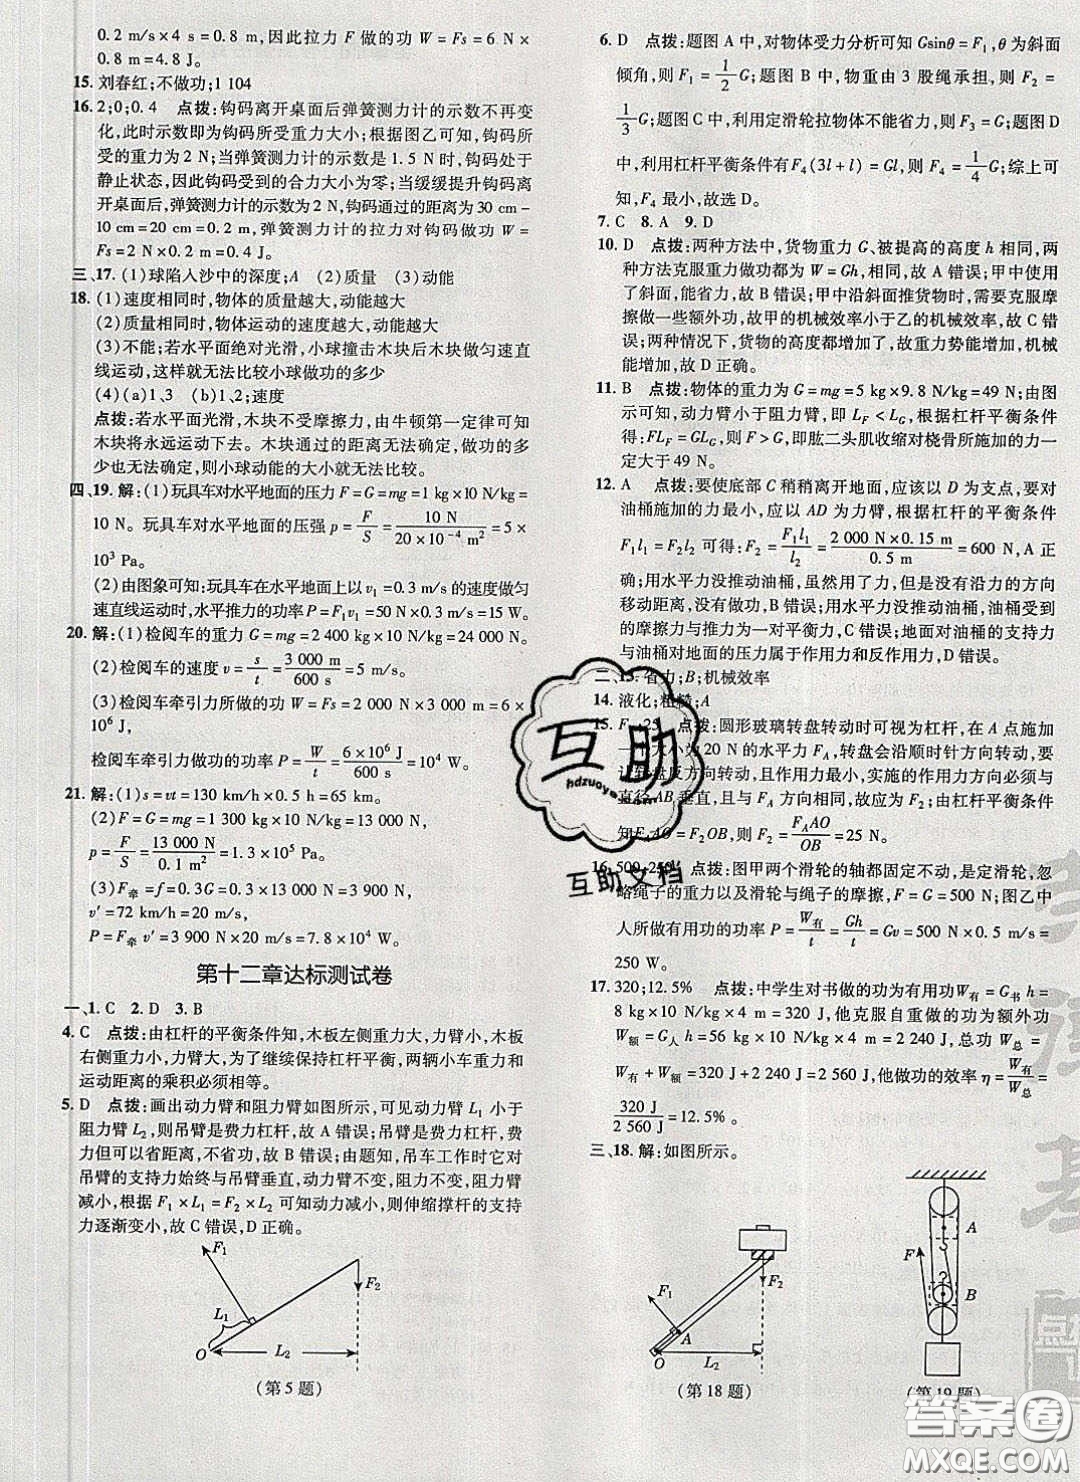 0.2 m/s×4 s=0.8 m,因此拉力 F 做的功 W=Fs=6 N×
0.8 m=4.8 J。
15. 刘春红;不做功;1 104
16. 2;0;0.4 点拨:钩码离开桌面后弹簧测力计的示数不再变
化,此时示数即为钩码所受重力大小;根据图乙可知,钩码所
受的重力为 2 N;当弹簧测力计的示数是 1.5 N时,钩码处于
静止状态,因此钩码受到的合力大小为零;当缓缓提升钩码离
开桌面后,弹簧测力计的示数为2 N,钩码通过的距离为30 cm-
10 cm=20 cm=0.2 m,弹簧测力计的拉力对钩码做功 W=
Fs=2 N×0.2 m=0.4 J。
三、17. (1)球陷入沙中的深度;A (2)质量 (3)动能
18. (1)速度相同时,物体的质量越大,动能越大
(2)质量相同时,物体运动的速度越大,动能越大
(3)不能;若水平面光滑,小球撞击木块后木块做匀速直
线运动,这样就无法比较小球做功的多少
(4)(a)1、3 (b)1、2;速度
点拨:若水平面光滑,木块不受摩擦力,由牛顿第一定律可知
木块将永远运动下去。木块通过的距离无法确定,做功的多
少也无法确定,则小球动能的大小就无法比较。
四、19. 解:(1)玩具车对水平地面的压力 F=G=mg=1 kg×10 N/kg=
10 N。玩具车对水平地面的压强 p=F/S=10 N/(20×10⁻⁴ m²)=5×
10³ Pa。
(2)由图象可知:玩具车在水平地面上以 v₁=0.3 m/s 的速度做匀
速直线运动时,水平推力的功率 P=F₁v₁=50 N×0.3 m/s=15 W。
20. 解:(1)检阅车的重力 G=mg=2 400 kg×10 N/kg=24 000 N。
(2)检阅车的速度 v=s/t=3 000 m/600 s=5 m/s。
(3)检阅车牵引力做的功 W=Fs=2 000 N×3 000 m=6×
10⁶ J,
检阅车牵引力做功的功率 P=W/t=6×10⁶ J/600 s=10⁴ W。
21. 解:(1)s=vt=130 km/h×0.5 h=65 km。
(2)F=G=mg=1 300 kg×10 N/kg=13 000 N,
p=F/S=13 000 N/0.1 m²=1.3×10⁵ Pa。
(3)F牵=f=0.3G=0.3×13 000 N=3 900 N,
v′=72 km/h=20 m/s,
P=F牵 v′=3 900 N×20 m/s=7.8×10⁴ W。
第十二章达标测试卷
一、1. C 2. D 3. B
4. C 点拨:由杠杆的平衡条件知,木板左侧重力大,力臂小,木板
右侧重力小,力臂大,为了继续保持杠杆平衡,两辆小车重力与
运动距离的乘积必须相等。
5. D 点拨:画出动力臂和阻力臂如图所示,可见动力臂 L₁ 小于
阻力臂 L₂,则吊臂是费力杠杆,故 A 错误;吊臂是费力杠杆,费
力但可以省距离,不省功,故 B 错误,吊车工作时它对
吊臂的支持力始终与吊臂垂直,动力臂不变,阻力不变,阻力臂
减小,根据 F₁×L₁=F₂×L₂ 可知动力减小,则伸缩撑杆的支持
力逐渐变小,故 C 错误,D 正确。
F₁
F₂
L₁
L₂
O
(第 5 题)
6. D 点拨:题图 A 中,对物体受力分析可知 Gsinθ=F₁,θ 为斜面
倾角,F₁=1/2 G;题图 B 中,物重由 3 股绳承担,则 F₂=
1/3 G;题图 C 中,利用定滑轮拉物体不能省力,则 F₃=G;题图 D
中,利用杠杆平衡条件有 F₄(3l+l)=Gl,则 F₄=1/4 G;综上可
知,F₄ 最小,故选 D。
7. C 8. A 9. D
10. D 点拨:两种方法中,货物重力 G、被提高的高度 h 相同,两
种方法克服重力做功都为 W=Gh,故 A 错误;甲中使用
了斜面,能省力,故 B 错误;甲中沿斜面推货物时,需要克服摩
擦做一些额外功,故甲的机械效率小于乙的机械效率,故 C 错
误;两种情况下,货物的高度都增加了,故重力势能增加,机械
能增加,故 D 正确。
11. B 点拨:物体的重力为 G=mg=5 kg×9.8 N/kg=49 N;由图
示可知,动力臂小于阻力臂,即 L_F<L_G,根据杠杆平衡条件
得:FL_F=GL_G,则 F>G,即肱二头肌收缩对桡骨所施加的力一
定大于 49 N。
12. A 点拨:要使底部 C 稍稍离开地面,应该以 D 为支点,要对
油桶施加的力最小,应以 AD 为力臂,根据杠杆的平衡条件
F₁l₁=F₂l₂ 可得:F₂=F₁l₁/l₂=2 000 N×0.15 m/0.5 m=600 N,A 正
确;用水平力没推动油桶,虽然用了力,但是没有沿力的方向
移动距离,没有做功,B 错误;用水平力没推动油桶,油桶受到
的摩擦力与推力为一对平衡力,C 错误;地面对油桶的支持力
与油桶对地面的压力属于作用力和反作用力,D 错误。
二、13. 省力;B;机械效率
14. 液化;粗糙;A
15. F₂;25 点拨:圆形玻璃转盘转动时可视为杠杆,在 A 点施加
一个大小为 20 N 的水平力 F_A,转盘会沿顺时针方向转动,要
让转盘反方向转动,且作用力最小,实施的作用力方向必须与
直径 AB 垂直,且与 F_A 方向相同,故应为 F₂;根据杠杆平衡条件
知 F_A AO=F₂OB,则 F₂=F_A AO/OB=25 N。
16. 500;250 点拨:图甲两个滑轮的轴都固定不动,是定滑轮,忽
略绳子的重力以及滑轮与绳子的摩擦,F=G=500 N;图乙中
人所做有用功的功率 P=W有/t=Gh/t=Gv=500 N×0.5 m/s=
250 W。
17. 320;12.5% 点拨:中学生对书做的功为有用功W有=G书 h=
8 kg×10 N/kg×4 m=320 J,他克服自重做的功为额外功
W额=G人 h=56 kg×10 N/kg×4 m=2 240 J,总功 W总=
W有+W额=320 J+2 240 J=2 560 J,他做功的效率 η=W有/W总=
320 J/2 560 J=12.5%。
三、18. 解:如图所示。
F₁
A
F₂
L₂
O
(第 18 题)
F
A
B
(第 19 题)
互助
hdzuoye.com
互助文档
答案圈
MXQE.COM